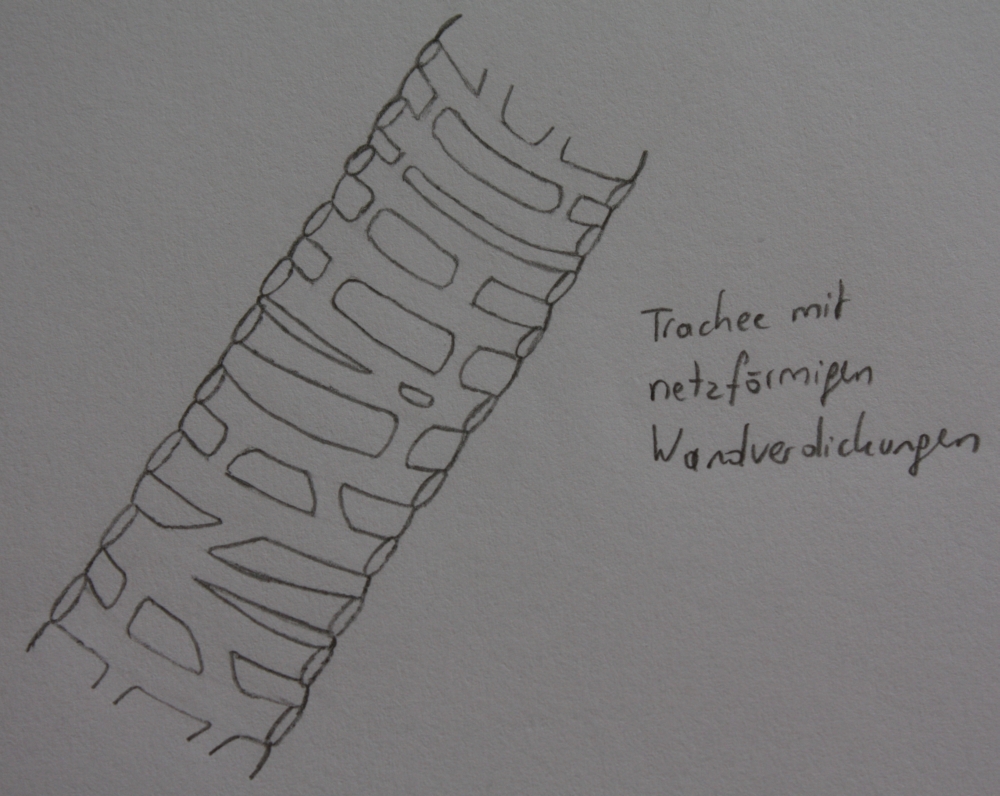 Trachee mit
netzförmigen
Wandverdickungen